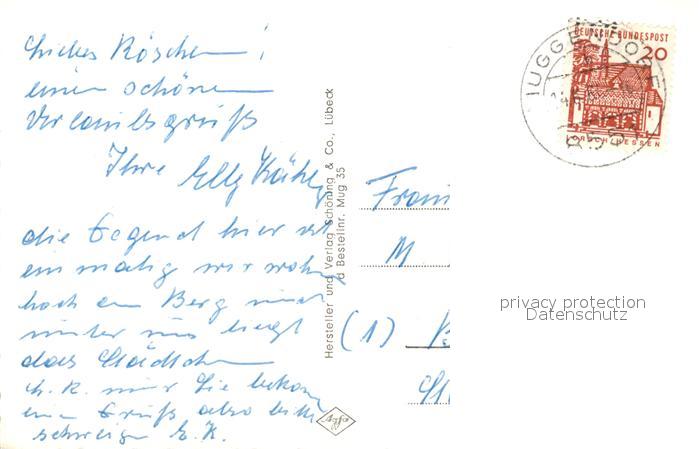 Liebes Röschen!
einen schönen
Urlaubsgruß
Ihre Elly
die Gegend hier ist
einmalig wir wohnen
hoch am Berg
unter uns liegt
das Städtchen
nur Sie bekom
einen Gruß also bitte
schweigen E. K.
Hersteller und Verlag Schöning & Co., Lübeck
d Bestellnr. Mug 35
M
(1)
DEUTSCHE BUNDESPOST
20
LORSCH/HESSEN
privacy protection
Datenschutz